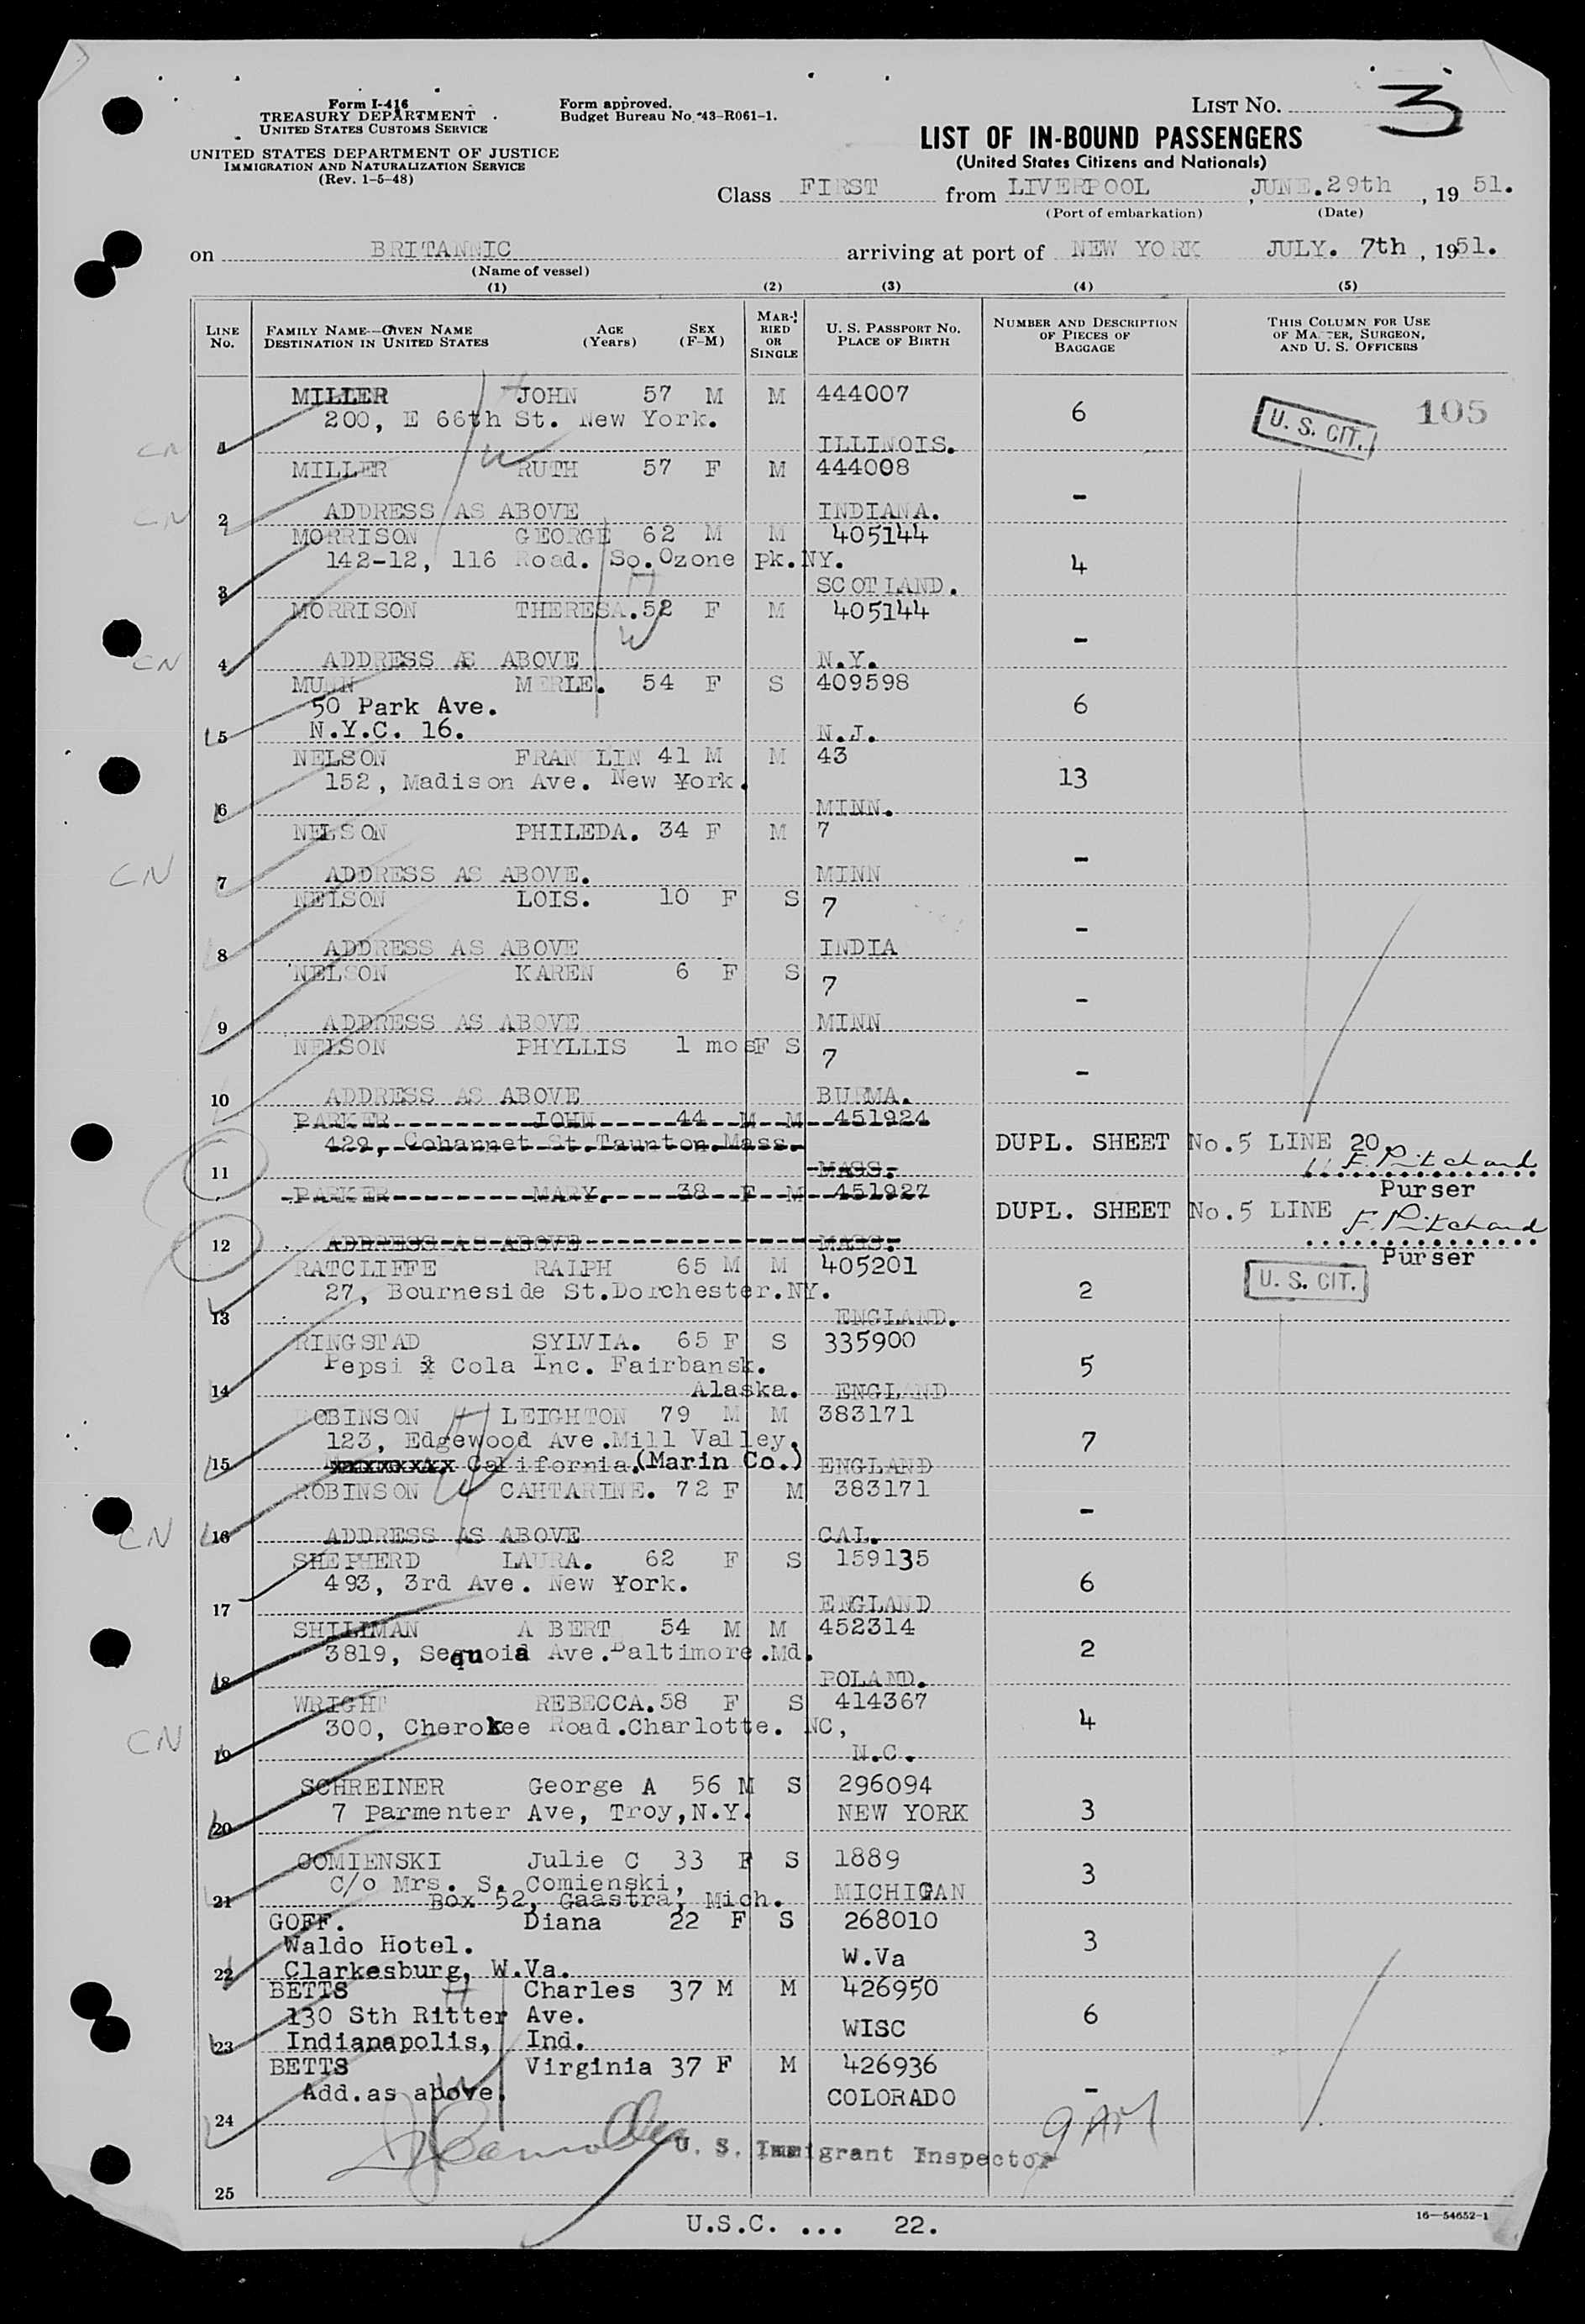 Form I-416
TREASURY DEPARTMENT
UNITED STATES CUSTOMS SERVICE
UNITED STATES DEPARTMENT OF JUSTICE
IMMIGRATION AND NATURALIZATION SERVICE
(Rev. 1-5-48)
Form approved.
Budget Bureau No. 43-R061-1.
LIST NO. 3
LIST OF IN-BOUND PASSENGERS
(United States Citizens and Nationals)
Class FIRST from LIVERPOOL, JUNE.29th, 19 51.
(Port of embarkation) (Date)
on BRITANNIC arriving at port of NEW YORK JULY. 7th, 1951.
(Name of vessel)
(1) (2) (3) (4) (5)
LINE NO. FAMILY NAME—GIVEN NAME DESTINATION IN UNITED STATES AGE (Years) SEX (F-M) MARRIED OR SINGLE U. S. PASSPORT NO. PLACE OF BIRTH NUMBER AND DESCRIPTION OF PIECES OF BAGGAGE THIS COLUMN FOR USE OF MASTER, SURGEON, AND U. S. OFFICERS
MILLER JOHN 57 M M 444007
200, E 66th St. New York. 6 U. S. CIT. 105
CN 1 ILLINOIS.
MILLER RUTH 57 F M 444008
-
CN 2 ADDRESS AS ABOVE INDIANA.
MORRISON GEORGE 62 M M 405144
142-12, 116 Road. So.Ozone pk.NY. 4
3 SCOTLAND.
MORRISON THERESA.52 F M 405144
-
CN 4 ADDRESS AS ABOVE N.Y.
MUNN MERLE. 54 F S 409598
50 Park Ave. 6
5 N.Y.C. 16. N.J.
NELSON FRANKLIN 41 M M 43
152, Madison Ave. New York. 13
6 MINN.
NELSON PHILEDA. 34 F M 7
-
CN 7 ADDRESS AS ABOVE. MINN
NELSON LOIS. 10 F S 7
-
8 ADDRESS AS ABOVE INDIA
NELSON KAREN 6 F S 7
-
9 ADDRESS AS ABOVE MINN
NELSON PHYLLIS 1 mos F S 7
-
10 ADDRESS AS ABOVE BURMA.
PARKER JOHN 44 M M 451924
429, Cohannet St.Taunton.Mass. DUPL. SHEET No.5 LINE 20.
11 MASS. F. Pritchard
Purser
PARKER MARY. 38 F M 451927
DUPL. SHEET No.5 LINE
12 ADDRESS AS ABOVE MASS. F. Pritchard
Purser
RATCLIFFE RALPH 65 M M 405201 U. S. CIT.
27, Bourneside St.Dorchester.NY. 2
13 ENGLAND.
RINGSTAD SYLVIA. 65 F S 335900
Pepsi & Cola Inc. Fairbansk. 5
14 Alaska. ENGLAND
ROBINSON LEIGHTON 79 M M 383171
123, Edgewood Ave.Mill Valley. 7
15 xxxxxxxxx California.(Marin Co.) ENGLAND
ROBINSON CAHTARINE. 72 F M 383171
-
CN 16 ADDRESS AS ABOVE CAL.
SHEPHERD LAURA. 62 F S 159135
493, 3rd Ave. New York. 6
17 ENGLAND
SHILLMAN A BERT 54 M M 452314
3819, Sequoia Ave.Baltimore.Md. 2
18 POLAND.
WRIGHT REBECCA.58 F S 414367
300, Cherokee Road.Charlotte. NC, 4
CN 19 N.C.
SCHREINER George A 56 M S 296094
7 parmenter Ave, Troy,N.Y. NEW YORK 3
20
COMIENSKI Julie C 33 F S 1889
C/o Mrs. S. Comienski, MICHIGAN 3
21 Box 52, Gaastra, Mich.
GOFF. Diana 22 F S 268010
Waldo Hotel. W.Va 3
22 Clarkesburg, W.Va.
BETTS Charles 37 M M 426950
130 Sth Ritter Ave. WISC 6
23 Indianapolis, Ind.
BETTS Virginia 37 F M 426936
Add.as above. COLORADO -
24 9 AM
U. S. Immigrant Inspector
25
U.S.C. ... 22.
16—54652-1